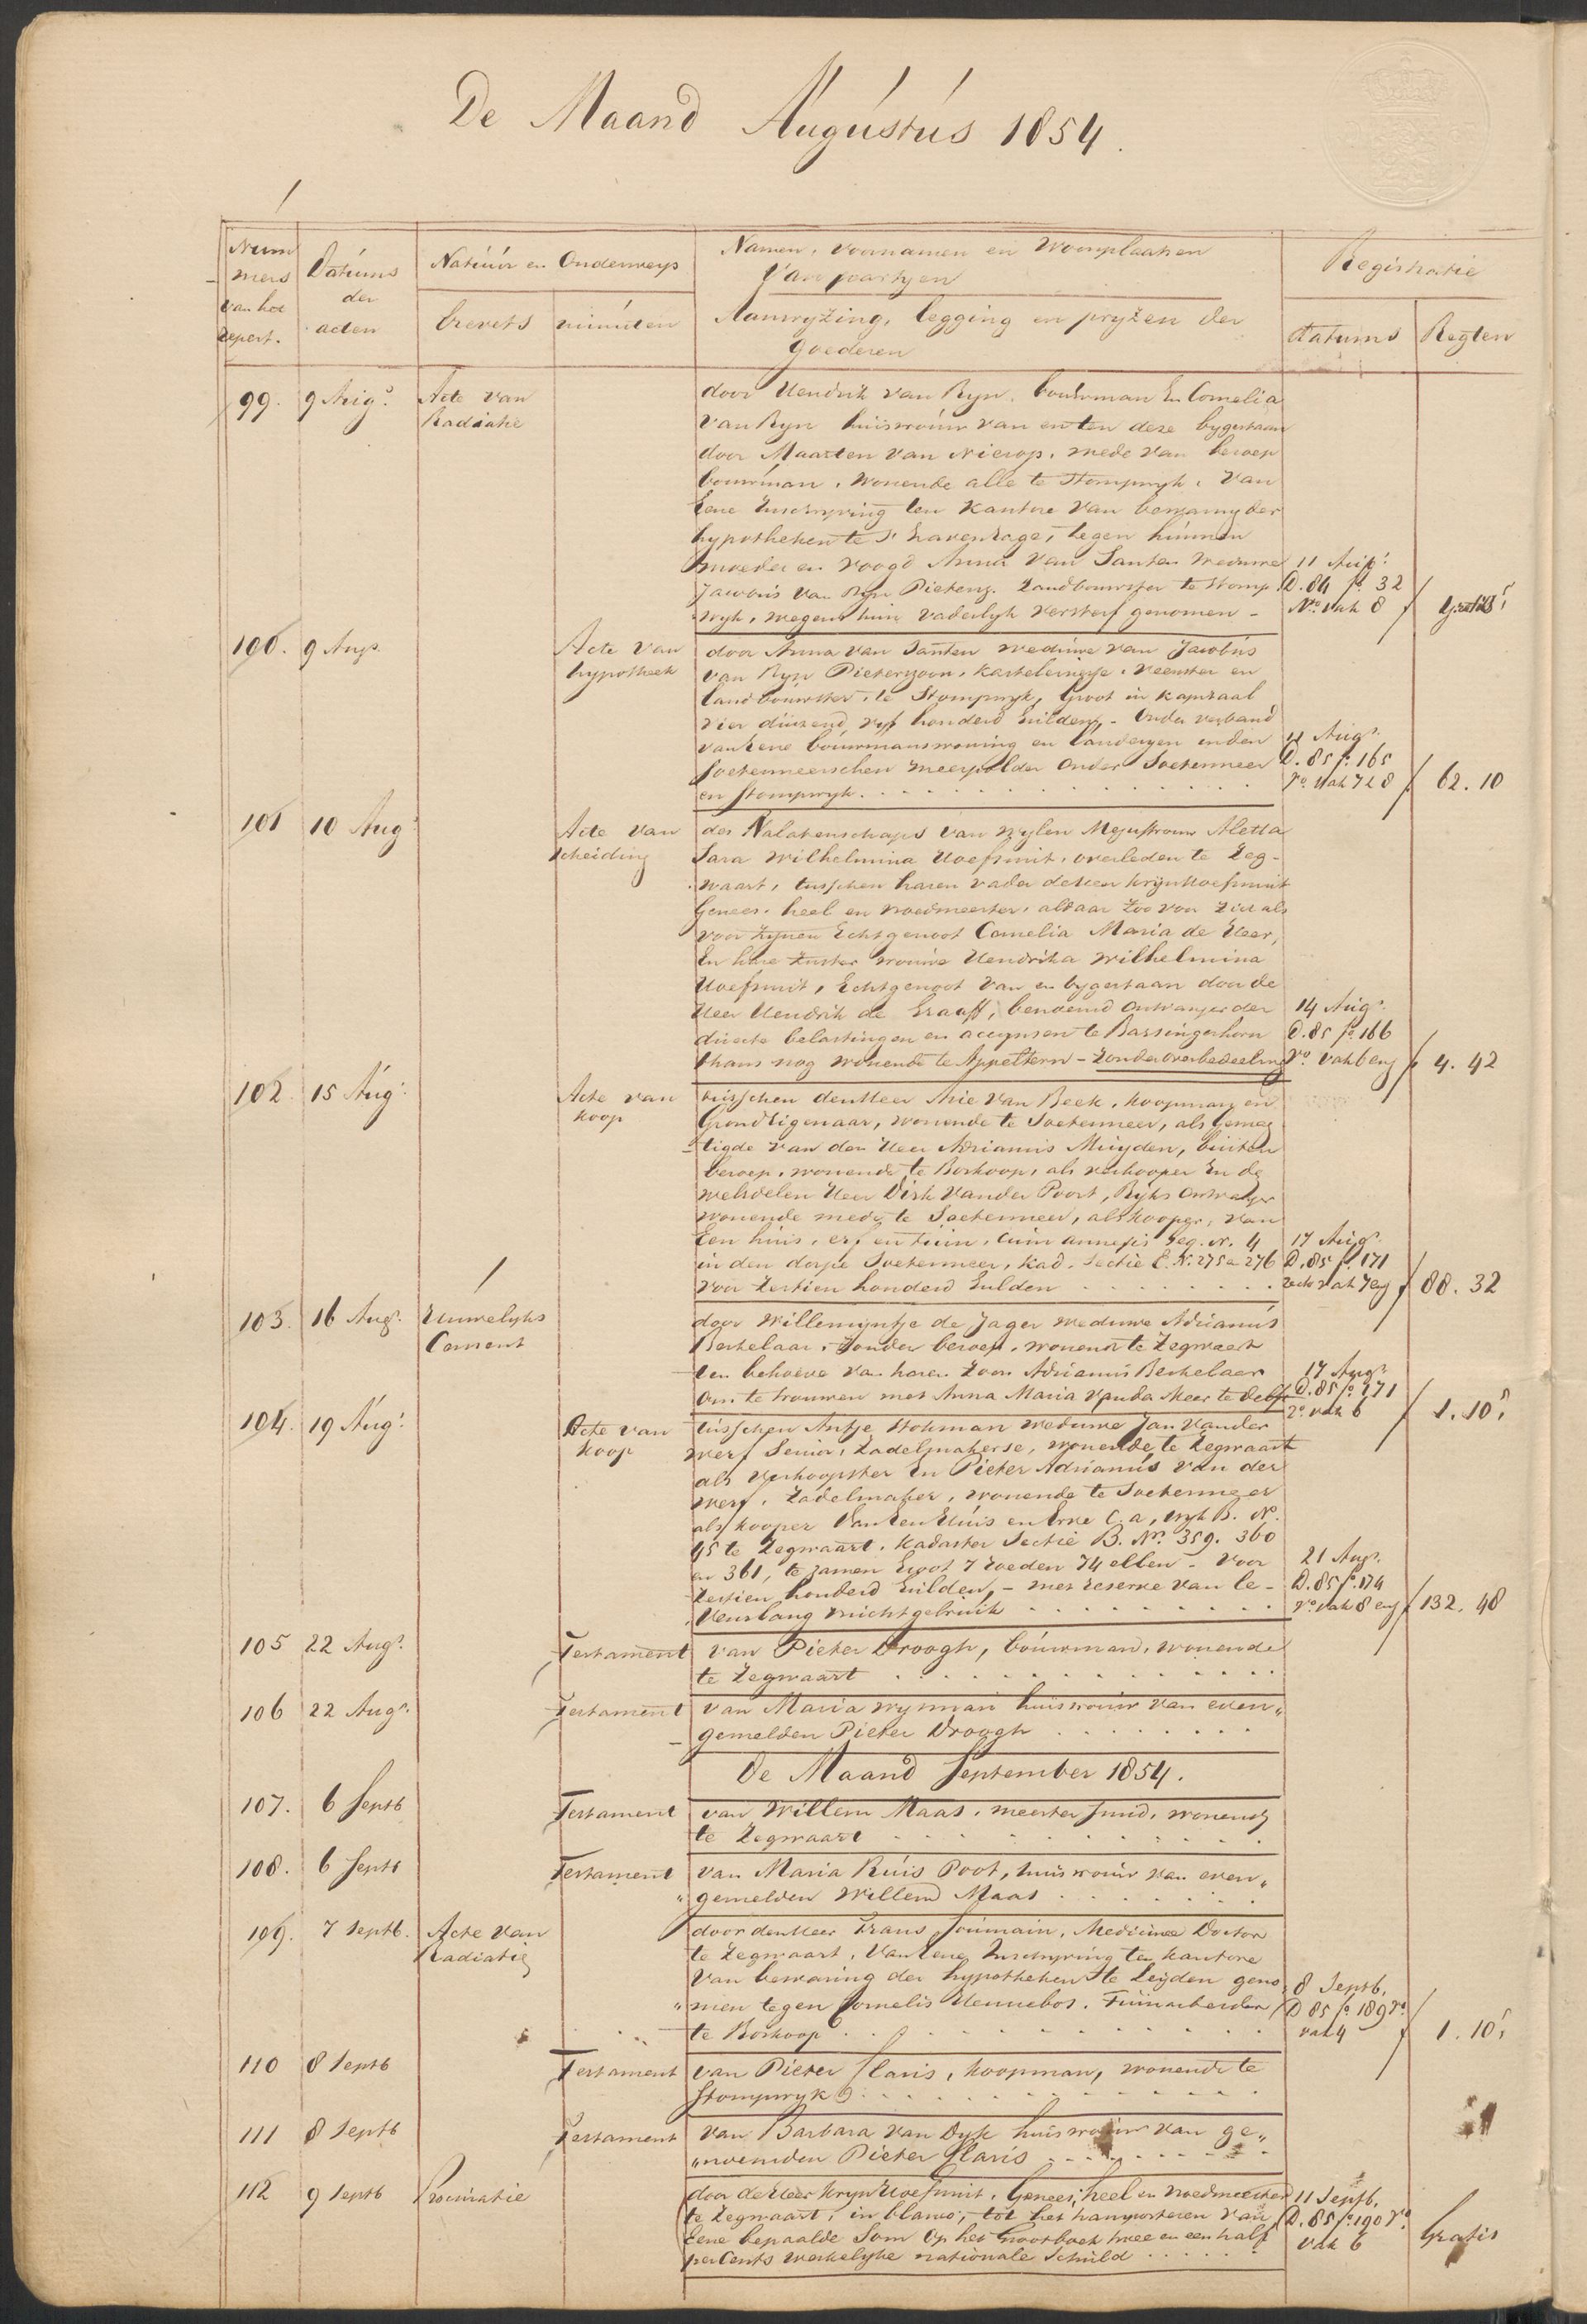 De Maand Augustus 1854.
Num
mers
van het
repert.
Datums
der
acten
Natuur en Onderwerp
brevets minuten
Namen, voornamen en Woonplaatsen
van partyen
Aanwyzing, legging en pryzen der
Goederen
Registratie
datums Regten
99. 9 Aug. Acte van
Radiatie
door Hendrik van Ryn, bouwman En Cornelia
van Ryn huisvrouw van en ten deze bygestaan
door Maarten van Nierop, mede van beroep
bouwman, wonende alle te Stompwyk, van
Eene Inschryving ten Kantore van bewaring der
hypotheken te s' Gravenhage, tegen hunnen
moeder en voogd Anna van Santen weduwe
Jacobus van Ryn Pieterz. Landbouwster te Stomp
wyk, wegens hun vaderlyk versterf genomen -
11 Aug.
D. 84 fo. 32
Vo. vak 8
Gratis
100. 9 Aug. Acte van
hypotheek
door Anna van Santen weduwe van Jacobus
van Ryn Pieterzoon, Kasteleinesse, veenster en
landbouwster, te Stompwyk, Groot in Kapitaal
vier duizend, vyf honderd Guldens, - Onder verband
van Eene bouwmanswoning en landeryen in den
Soetermeerschen meerpolder Onder Soetermeer
en Stompwyk.
11 Aug.
D. 85 fo. 165
ro. vak 7 & 8
62. 10
101 10 Aug. Acte van
scheiding
der Nalatenschaps van wylen Mejuffrouw Aletta
Sara Wilhelmina Hoefsmit, overleden te Zeg-
waart, tusschen haren vader de Heer Kryn Hoefsmit
Genees, heel en vroedmeester, aldaar zoo voor zich als
voor zynen Echtgenoot Cornelia Maria de Heer,
En hare zuster vrouwe Hendrika Wilhelmina
Hoefsmit, Echtgenoot van en bygestaan door de
Heer Hendrik de Graaff, benoemd Ontvanger der
directe belastingen en accynsen te Barsingerhorn
thans nog wonende te Appeltern - zonder overbedeeling
14 Aug.
D. 85 fo. 166
Vo. vak 6 env
4. 42
102. 15 Aug. Acte van
koop
tusschen den Heer Arie van Beek, koopman en
Grondeigenaar, wonende te Soetermeer, als Gemag
tigde van den Heer Adrianus Muyden, buiten
beroep, wonende te Boskoop, als verkooper En de
weledelen Heer Dirk van der Poort, Ryks Ontvanger
wonende mede te Soetermeer, als kooper, van
Een huis, erf en tuin, cum annexis Geq. N. 4
in den dorpe Soetermeer, Kad. Sectie E. N. 275 en 276
voor zestien honderd Gulden
17 Aug.
D. 85 fo. 171
recto vak 7 env
88. 32
103. 16 Aug. Huwelyks
Consent
door Willemyntje de Jager weduwe Adrianus
Berkelaar, zonder beroep, wonende te Zegwaart
ten behoeve van haren zoon Adrianus Berkelaar
Om te trouwen met Anna Maria van der Meer te Delft
17 Aug.
D. 85 fo. 171
ro. vak 6
1. 10 5
104. 19 Aug. Acte van
koop
tusschen Antje Stokman weduwe Jan van der
Werf Senior, zadelmakerse, wonende te Zegwaart
als verkoopster En Pieter Adrianus van der
Werf, zadelmaker, wonende te Soetermeer
als kooper Van Een Huis en Erve C. a, wyk B. No.
45 te Zegwaart. Kadaster Sectie B. No. 359. 360
en 361, te zamen Groot 7 roeden 74 ellen - voor
zestien honderd Guldens, - met reserve van le-
venslang vruchtgebruik
21 Aug.
D. 85 fo. 174
vo. vak 8 env
132. 48
105 22 Aug. Testament van Pieter Droogh, bouwman, wonende
te Zegwaart
106 22 Aug. Testament van Maria Wysman huisvrouw van even"
gemelden Pieter Droogh
De Maand September 1854.
107. 6 Septb Testament van Willem Maas, meester smid, wonende
te Zegwaart
108. 6 Septb Testament van Maria Kuis Poot, huisvrouw van even"
" gemelden Willem Maas
109. 7 Septb. Acte van
Radiatie
door den Heer Frans Soumain, Medicinae Doctor
te Zegwaart, van Eene Inschryving ten kantore
van bewaring der hypotheken te Leyden geno
" men tegen Cornelis Hennebos. Tuinarbeider
te Boskoop
8 Septb.
D 85 fo. 189 vo
vak 4
1. 10 5
110 8 Septb Testament van Pieter Claris, koopman, wonende te
Stompwyk
111 8 Septb Testament van Barbara van Dyk huisvrouw van ge"
"noemden Pieter Claris
112 9 Septb Procuratie
door de Heer Kryn Hoefsmit, Genees, heel en vroedmeester
te Zegwaart, in blanco, tot het transporteren van
Eene bepaalde Som Op het Grootboek twee en een half
perCents werkelyke nationale Schuld
11 Septb.
D. 85 fo. 190 ro
vak 6
Gratis